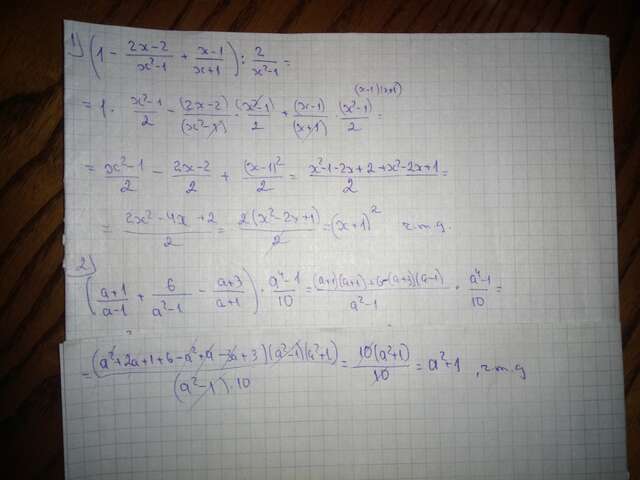 1) (1 - (2x-2)/(x²-1) + (x-1)/(x+1)) : 2/(x²-1) =
= 1 · (x²-1)/2 - (2x-2)/(x²-1) · (x²-1)/2 + (x-1)/(x+1) · (x²-1)/2 = (x-1)(x+1)
= (x²-1)/2 - (2x-2)/2 + (x-1)²/2 = (x²-1-2x+2+x²-2x+1)/2 =
= (2x²-4x+2)/2 = 2(x²-2x+1)/2 = (x+1)² чтд.
2)
((a+1)/(a-1) + 6/(a²-1) - (a+3)/(a+1)) · (a⁴-1)/10 = ((a+1)(a+1)+6-(a+3)(a-1))/(a²-1) · (a⁴-1)/10 =
= (a²+2a+1+6-a²+a-3a+3)(a²-1)(a²+1)/((a²-1)·10) = 10(a²+1)/10 = a²+1, чтд